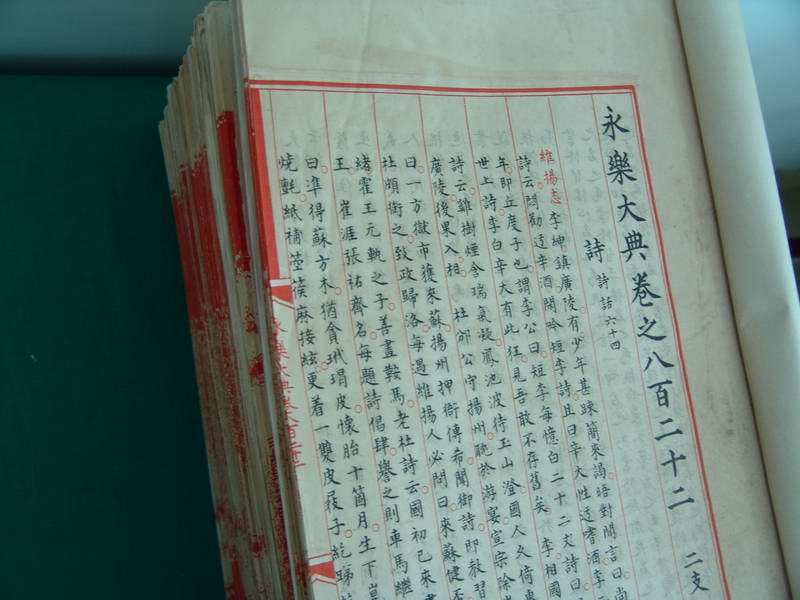 永樂大典卷之八百二十二 二支
詩 詩話六十四
維揚志李紳鎮廣陵有少年甚踈簡來謁晤對間言曰尚
詩云閒勸迃辛酒閒吟短李詩且曰辛大性迃嗜酒李
年即丘度子也謂李公曰短李每憶白二十二丈詩曰
世上詩李白辛大有此狂兒吾敢不存舊矣 李相國
詩云雞樹煙含瑞氣凝鳳池波待玉山澄國人久倚東
廣陵後果入相 杜邠公守揚州聽於游宴宣宗除
曰一方獄市獲來蘇揚州押衙傳希聞御詩即教習
杜頗銜之致政歸洛每遇維揚人必問曰來蘇健否
緒霍王元軌之子善畫鞍馬老杜詩云國初已來畫
王 崔涯張祜齊名每題詩倡肆譽之則車馬繼
曰準得蘇方木猶貪玳瑁皮懷胎十箇月生下崑
燒氈紙補箜篌麻接絃更着一雙皮屐子紇睇
永樂大典卷八百二十二